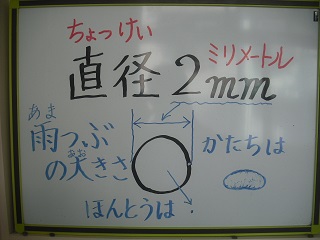 ちょっけい ミリメートル
直径2mm
あま
雨つぶ
おお
の大きさ
かたちは
ほんとうは